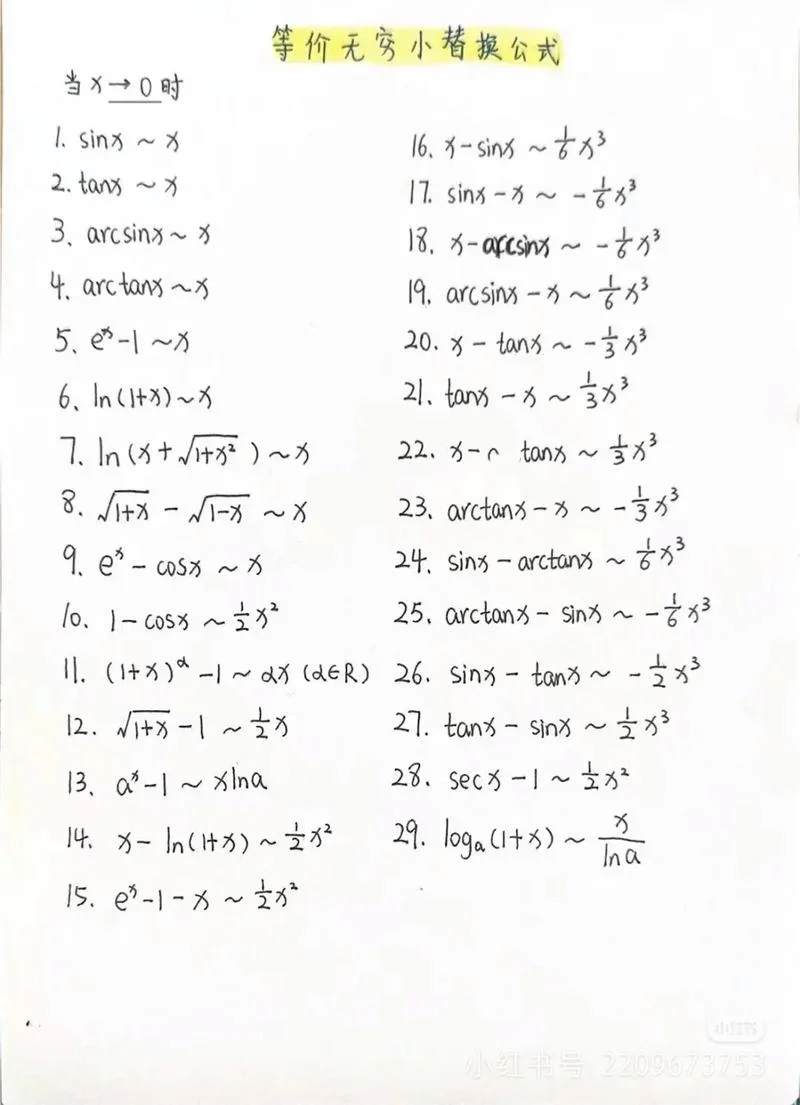 等价无穷小替换公式
当 x → 0 时
1. sinx ~ x
2. tanx ~ x
3、arcsinx ~ x
4、arctanx ~ x
5、eˣ-1 ~ x
6、ln(1+x) ~ x
7. ln(x+√(1+x²)) ~ x
8. √(1+x) - √(1-x) ~ x
9. eˣ - cosx ~ x
10. 1-cosx ~ ½x²
11. (1+x)^α -1 ~ αx (α∈R)
12. √(1+x) -1 ~ ½x
13、aˣ-1 ~ xlna
14. x- ln(1+x) ~ ½x²
15. eˣ-1-x ~ ½x²
16. x-sinx ~ ⅙x³
17. sinx-x ~ -⅙x³
18. x-arcsinx ~ -⅙x³
19. arcsinx-x ~ ⅙x³
20. x-tanx ~ -⅓x³
21. tanx-x ~ ⅓x³
22. x- tanx ~ ⅓x³
23. arctanx-x ~ -⅓x³
24. sinx-arctanx ~ ⅙x³
25. arctanx-sinx ~ -⅙x³
26. sinx-tanx ~ -½x³
27. tanx-sinx ~ ½x³
28. secx-1 ~ ½x²
29. logₐ(1+x) ~ x/lna
小红书
小红书号 2209673753